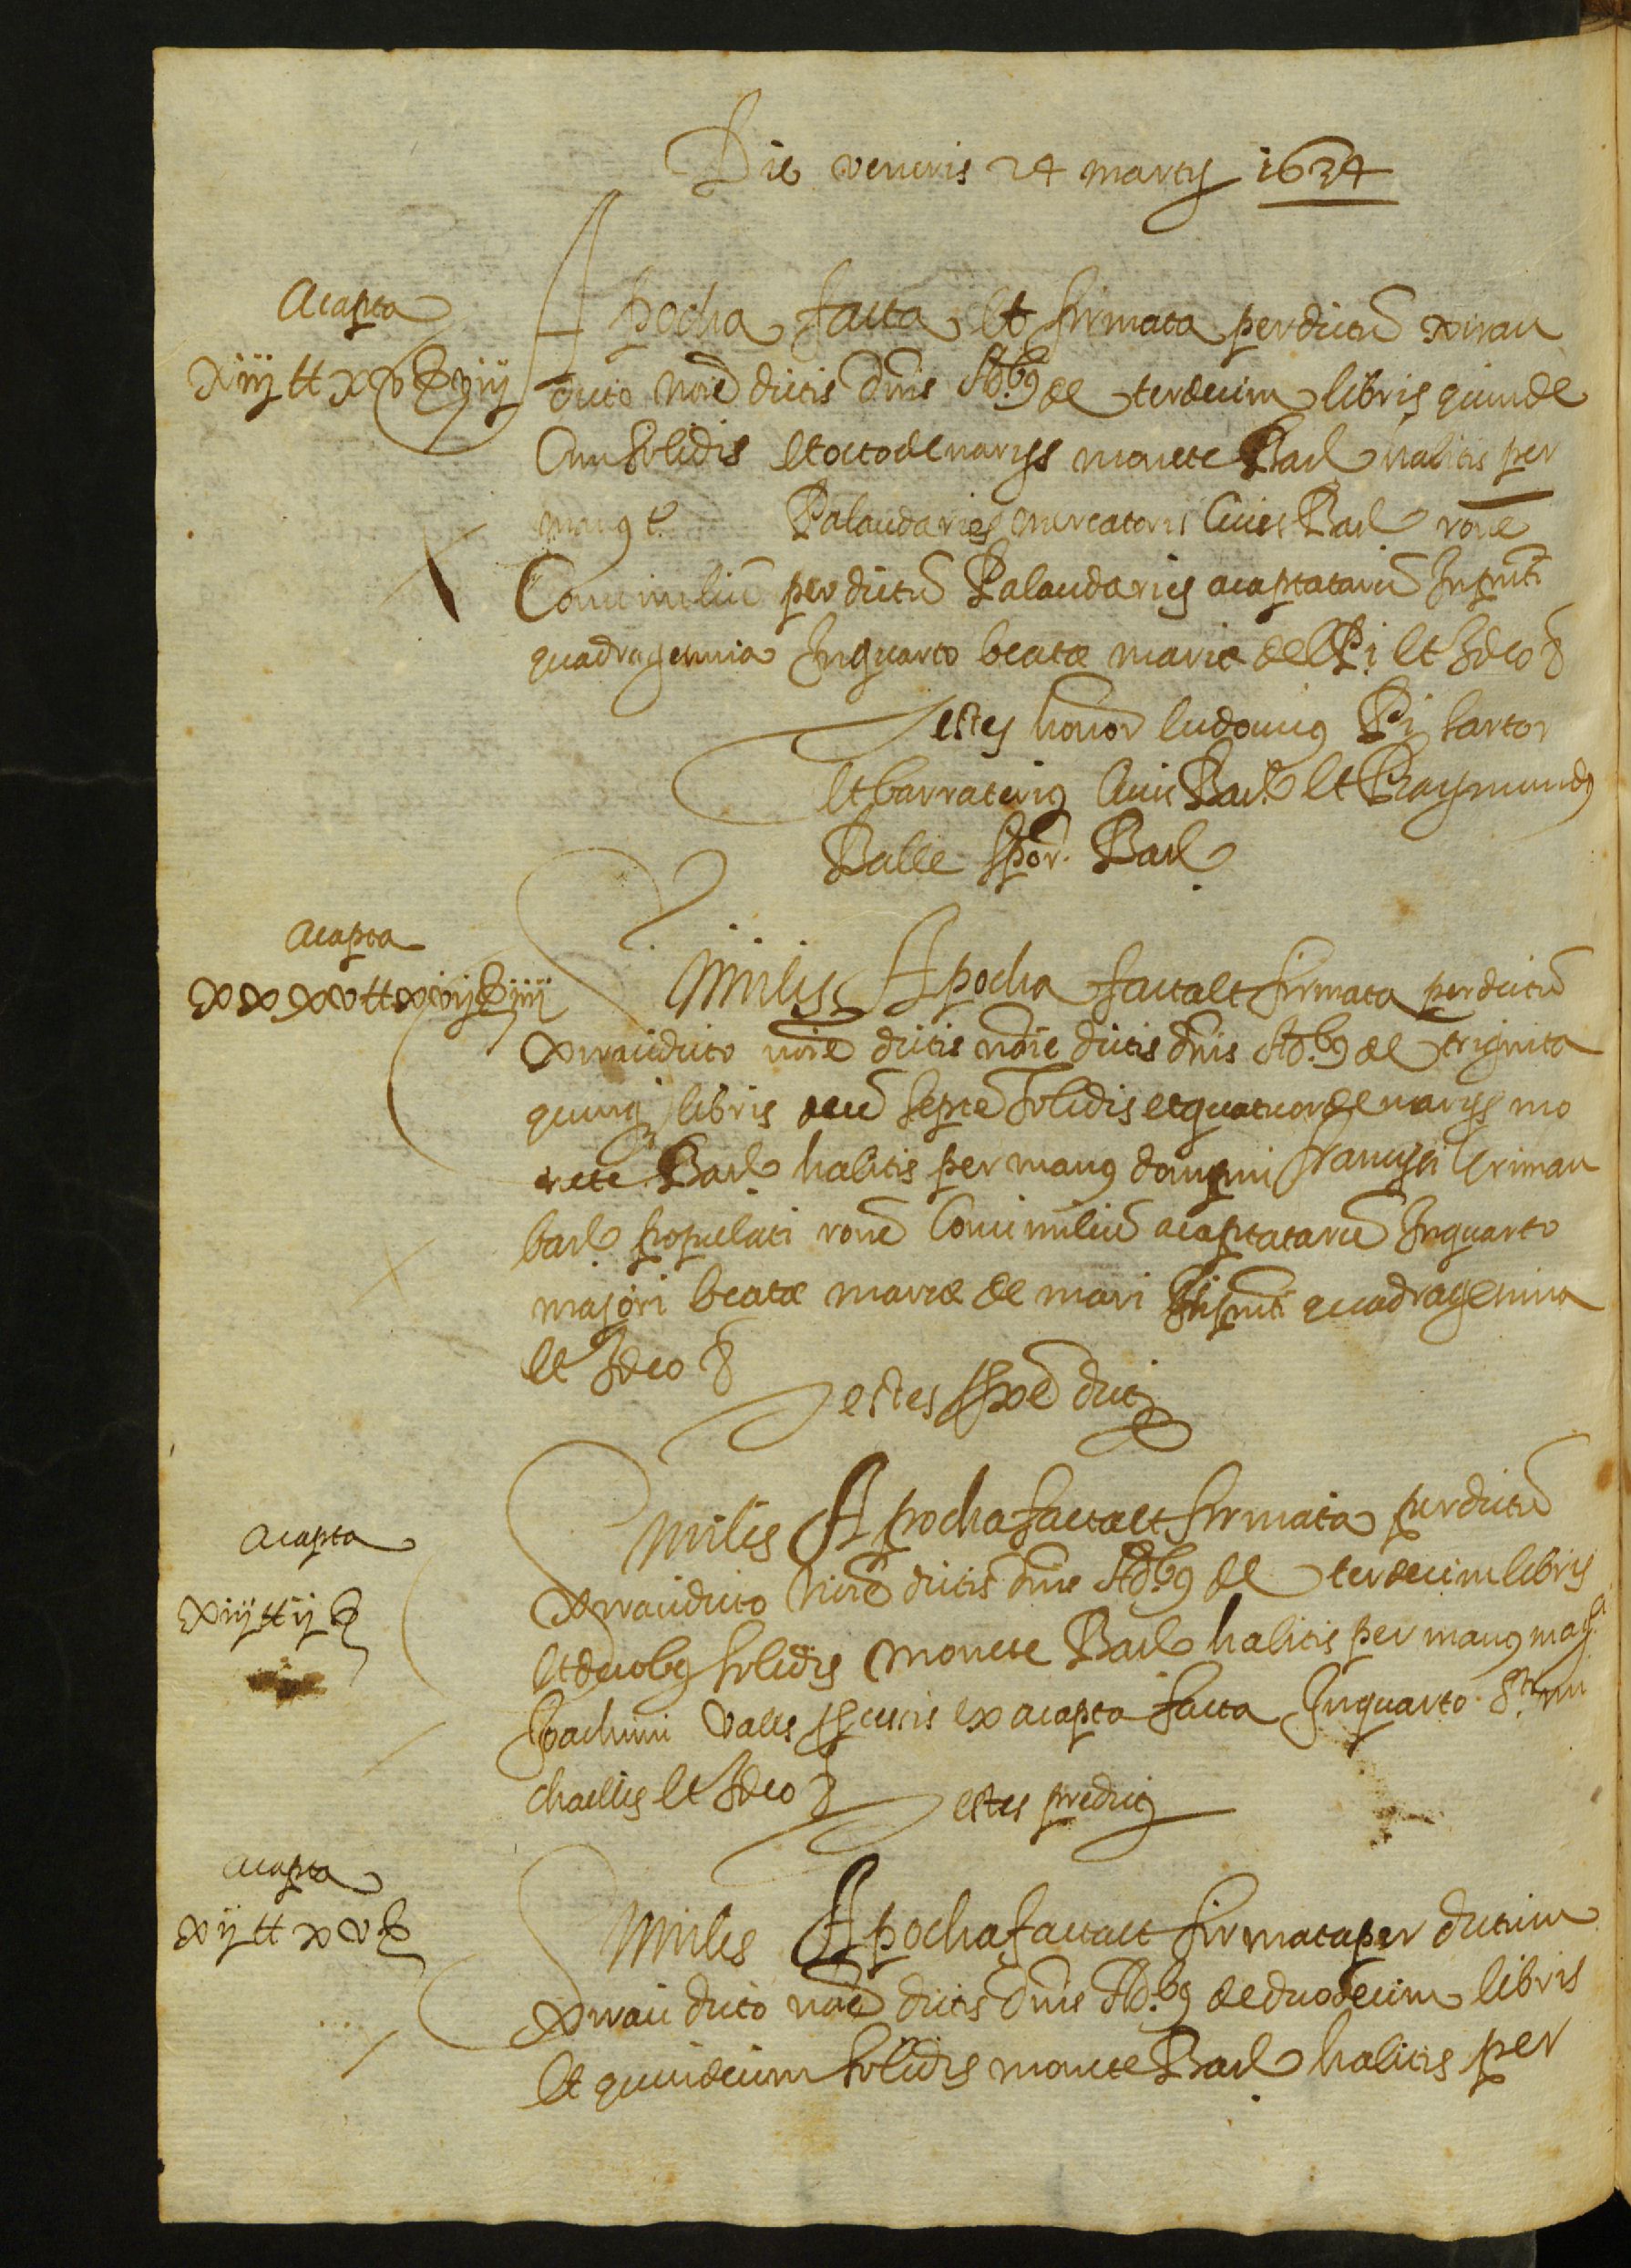 Die veneris 24 martij 1634
Acapta
xiij ll xv ß viij
Apocha facta et firmata per dictũ xirau
dicto noĩe dictis dñis Adbꝰ de terdecim libris quinde
cim solidis et octo denarijs monete Barl habitis per
manꝰ Palaudaries mercatoris civis Barl rõne
Convimiliũ per dictũ Palaudaries acaptatarũ In pñti
quadragennia In quarto beatæ marie del Pi Et Ideo &
Testes honor ludovicꝰ Pi sartor
et barraterius civis Barl et Raymundꝰ
Balle scptor. Barl
Acapta
xxxv ll xvij ß iiij
Similis Apocha facta et firmata per dictũ
xirau dicto noĩe dictis noĩe dictis dñis Adbꝰ de triginta
quinq libris decẽ septẽ solidis et quatuor denarijs mo
nete Barl habitis per manꝰ domini Francisci Griman
barl populati rõne Convimiliũ acaptatarũ In quarto
majori beatæ mariæ de mari In pñti quadragennia
et Ideo &
Testes pxĩe dicti
Acapta
xiij ll ij ß
Similis Apocha facta et firmata per dictũ
xirau dicto noĩe dictis dñis Adbꝰ de terdecim libris
et duobꝰ solidis monete Barl habitis per manꝰ magci
Joachimi Valls ex acapta facta In quarto Sti mi
chaelis et Ideo & Testes predicti
Acapta
xij ll xv ß
Similis Apocha facta et firmata per dictum
xirau dicto noĩe dictis dñis Adbꝰ de duodecim libris
et quindecim solidis monete Barl habitis per